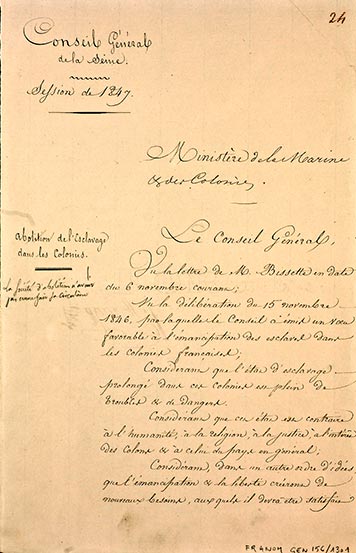 24
Conseil Général
de la Seine.
Session de 1847.
Ministère de la Marine
& des Colonies.
Abolition de l'Esclavage
dans les Colonies.
Le Conseil Général,
Vu la lettre de M. Bissette en date
du 6 novembre courant;
Vu la délibération du 15 novembre
1846, par laquelle le Conseil a émis un voeu
favorable à l'émancipation des esclaves dans
les colonies françaises;
Considérant que l'état d'esclavage
prolongé dans ces colonies est plein de
troubles & de dangers.
Considérant que cet état est contraire
à l'humanité, à la religion, à la justice, à l'intérêt
des Colons & à celui du pays en général.
Considérant, dans un autre ordre d'idées
que l'émancipation & la liberté créeront de
nouveaux besoins, auxquels il devra être satisfait
FR ANOM GEN 156/1301